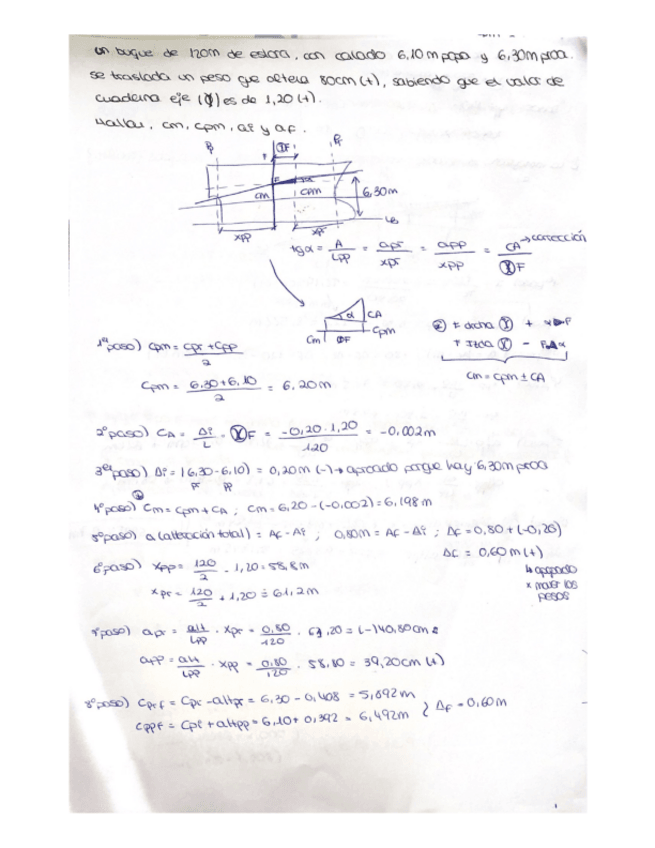 un buque de 120m de eslora, con calado 6,10m popa y 6,30m proa.
se traslada un peso que altera 80cm (+), sabiendo que el valor de
cuaderna eje (⦻) es de 1,20 (+).
Hallar, cm, cpm, ai y aF.
Pp ⦻F Pr
F α
cm cpm 6,30m
xpp xpr LB
tgα = A/Lpp = apr/xpr = app/xpp = CA/⦻F → corrección
α CA
cm ⦻F cpm
1er paso) cpm = (cpr + cpp)/2
Cpm = (6,30+6,10)/2 = 6,20m
cm = cpm ± CA
2º paso) CA = Δi/L = ⦻F = (-0,20 · 1,20)/120 = -0,002m
3er paso) Δi = (6,30-6,10) = 0,20m (-) → aproado porque hay 6,30m proa
pr pp
4º paso) Cm = cpm + CA ; cm = 6,20 - (-0,002) = 6,198m
5º paso) a (alteración total) = Af - Ai ; 0,80m = Af - Δi ; Δf = 0,80 + (-0,20)
Δf = 0,60m (+)
↳ apopado
x mover los
pesos
6º paso) xpp = 120/2 - 1,20 = 58,8m
xpr = 120/2 + 1,20 = 61,2m
7º paso) apr = alt/Lpp · xpr = 0,80/120 · 61,20 = (-) 40,80cm
app = alt/Lpp · xpp = 0,80/120 · 58,80 = 39,20cm (+)
8º paso) Cprf = Cpr - altpr = 6,30 - 0,408 = 5,892m
cppf = Cpi + altpp = 6,10 + 0,392 = 6,492m } Δf = 0,60m